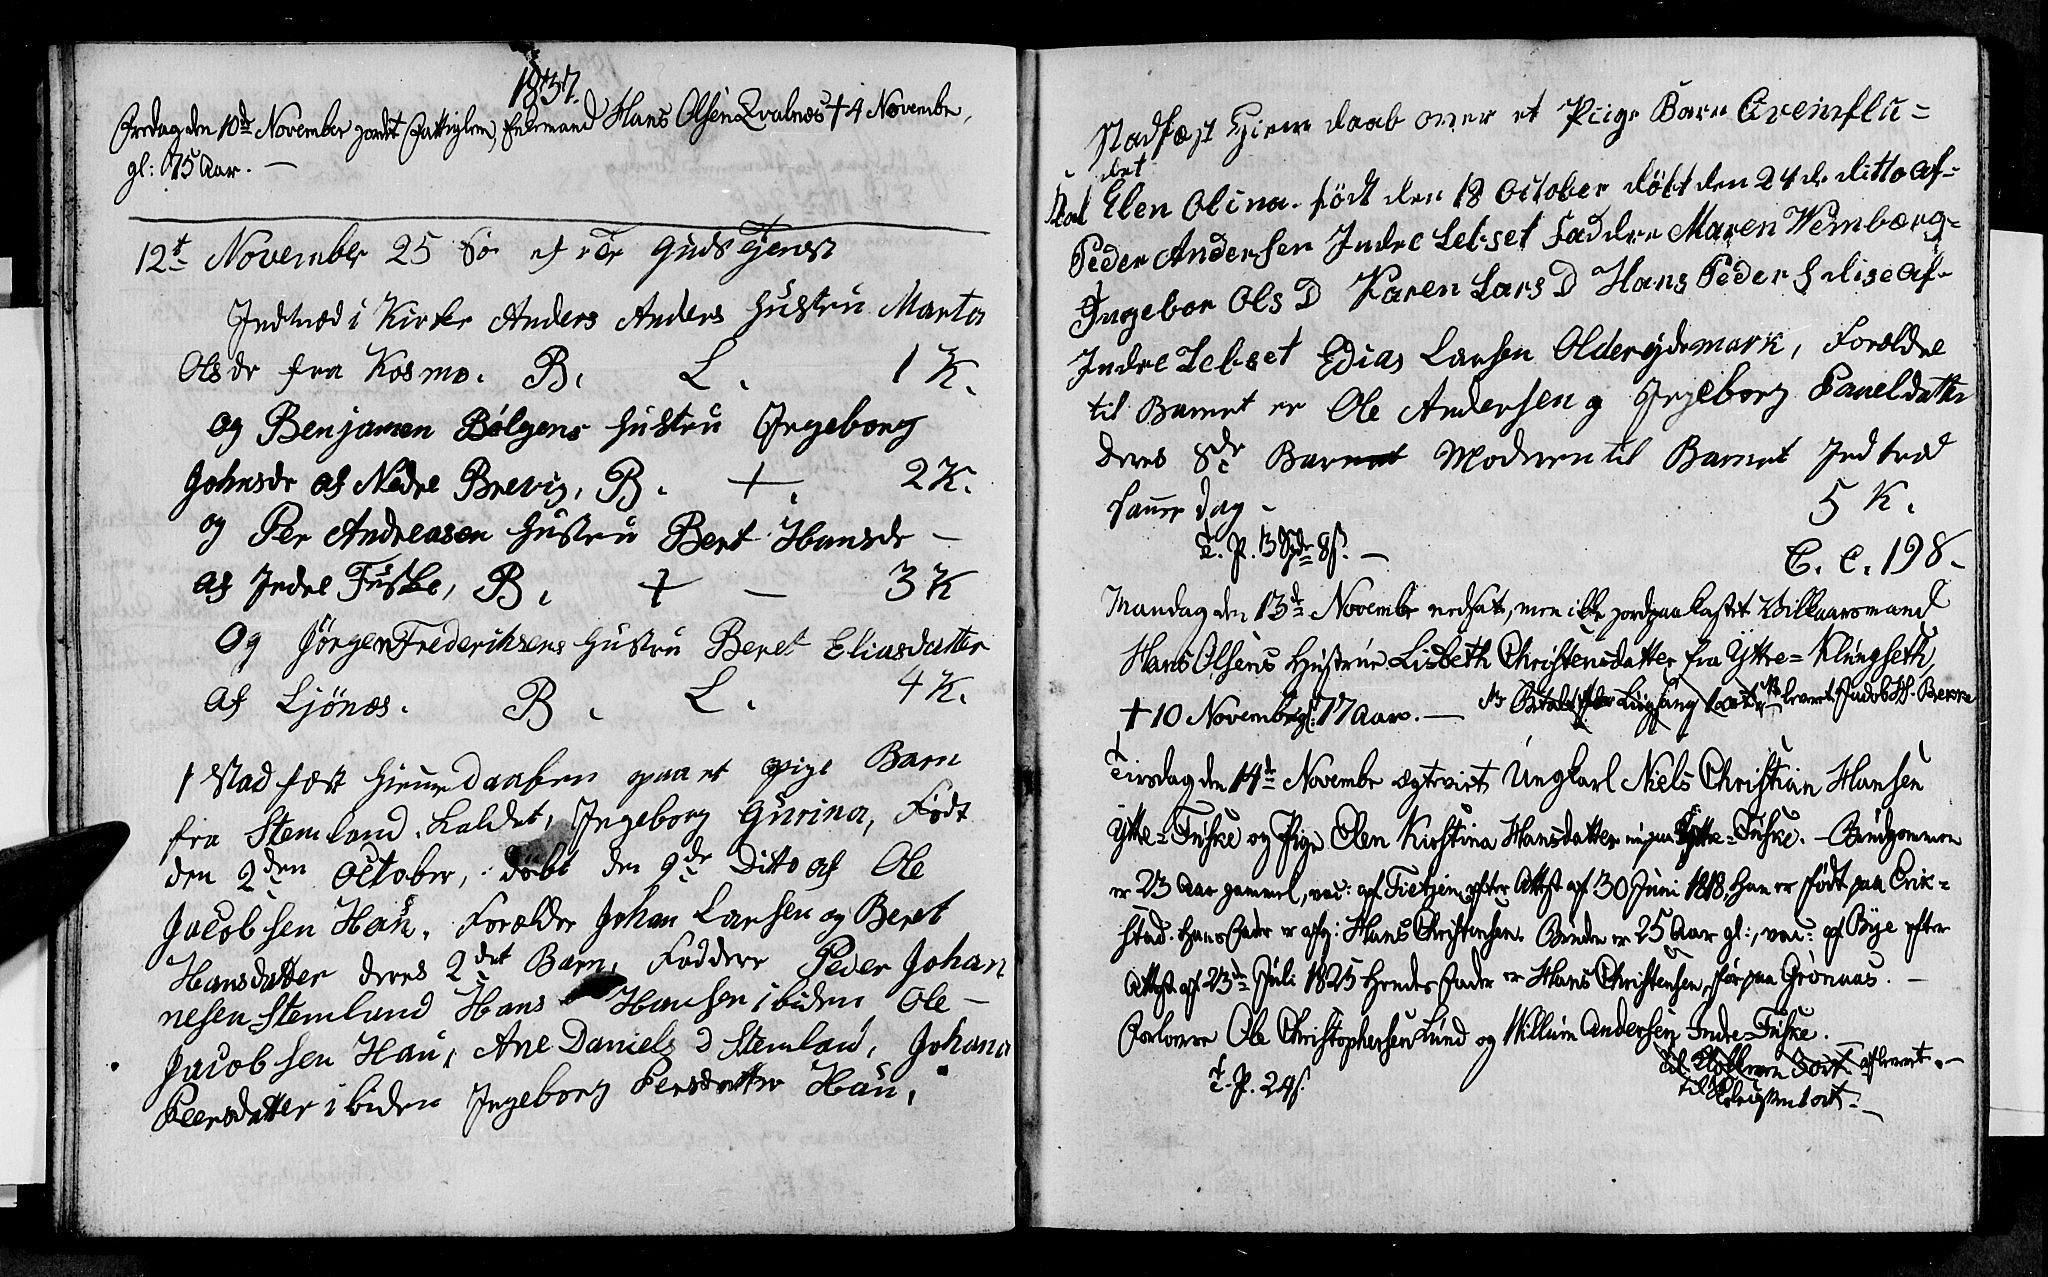 1837.
Fredag den 10de November jordet Fattiglem, Enkemand Hans Olsen Qvalnæs + 4 Novembr,
gl: 75 Aar. —
12t November 25 Sø ef Tr Guds Tjenst
Indtræd i Kirke Anders Anders Hustru Marta
Olsdr fra Kosmo. B. L. 1 K.
og Benjamen Bølgens Hustru Ingeborg
Johnsdr af Nedre Brevig, B. +. 2 K.
og Per Andreasen Hustru Beret Hansdr —
af Indre Fuske, B. + — 3 K
Og Jørgen Frederiksens Hustru Beret Eliasdatter
af Ljönæs. B. L. 4 K.
1 Stadfæst Hjemmedaaben paa et pige Barn
fra Stemland. Kaldet, Ingeborg Gurina, Født
den 2den October, døbt den 9de Ditto af Ole
Jacobsen Hau. Forældre Johan Larsen og Beret
Hansdatter deres 2det Barn, Faddere Peder Johan
nesen Stemland Hans Hansen ibiden Ole —
Jacobsen Hau, Ane Daniels D Stemland, Johana
Peersdatter ibiden Ingeborg Persdatter Hau.
Stadfæst Hjeme daab over et Piige Barn
det
Kal Elen Olina. født den 18 October døbt den 24 de ditto af
Peder Andersen Indre Lebset Faddere Maren Wembærg
Ingebor Ols D Karen Lars D Hans Peder
Indre Lebset Edias Larsen Oldereidemark, Forældre
til Barnet er Ole Andersen og Ingeborg Paueldatter
deres 8de Barn Moderen til Barnet Indtræd
samme dag — 5 K.
T. P. 3 Spdr 8 s. — C. C. 198.
Mandag den 13de Novembr nedsat, men ikke jordpaakastet Vilkaarsmand
Hans Olsens Hustrue Lisbeth Christensdatter fra Yttre=Klungseth,
+ 10 November gl: 77 Aar. — Liigsang levert Jacob H. Berre
Tirsdag den 14de Novembr ægteviet Ungkarl Niels Christian Hansen
Yttre=Fuske og Pige Elen Kirstina Hansdatter Yttre=Fuske. — Brudgommen
er 23 Aar gammel, vac: af Tietzen efter Attest af 30 Juni 1818. Han er født paa Erik=
stad. Hans Fader er afg: Hans Christensen. Bruden er 25 Aar gl:, vac: af Bye efter
Attest af 23de Juli 1825 Hendes Fader er Hans Christensen, før paa Grønaas. —
Forlovere Ole Christophersen Lund og Willum Andersen Indre=Fuske.
T. P. 24 s. afleveret. —